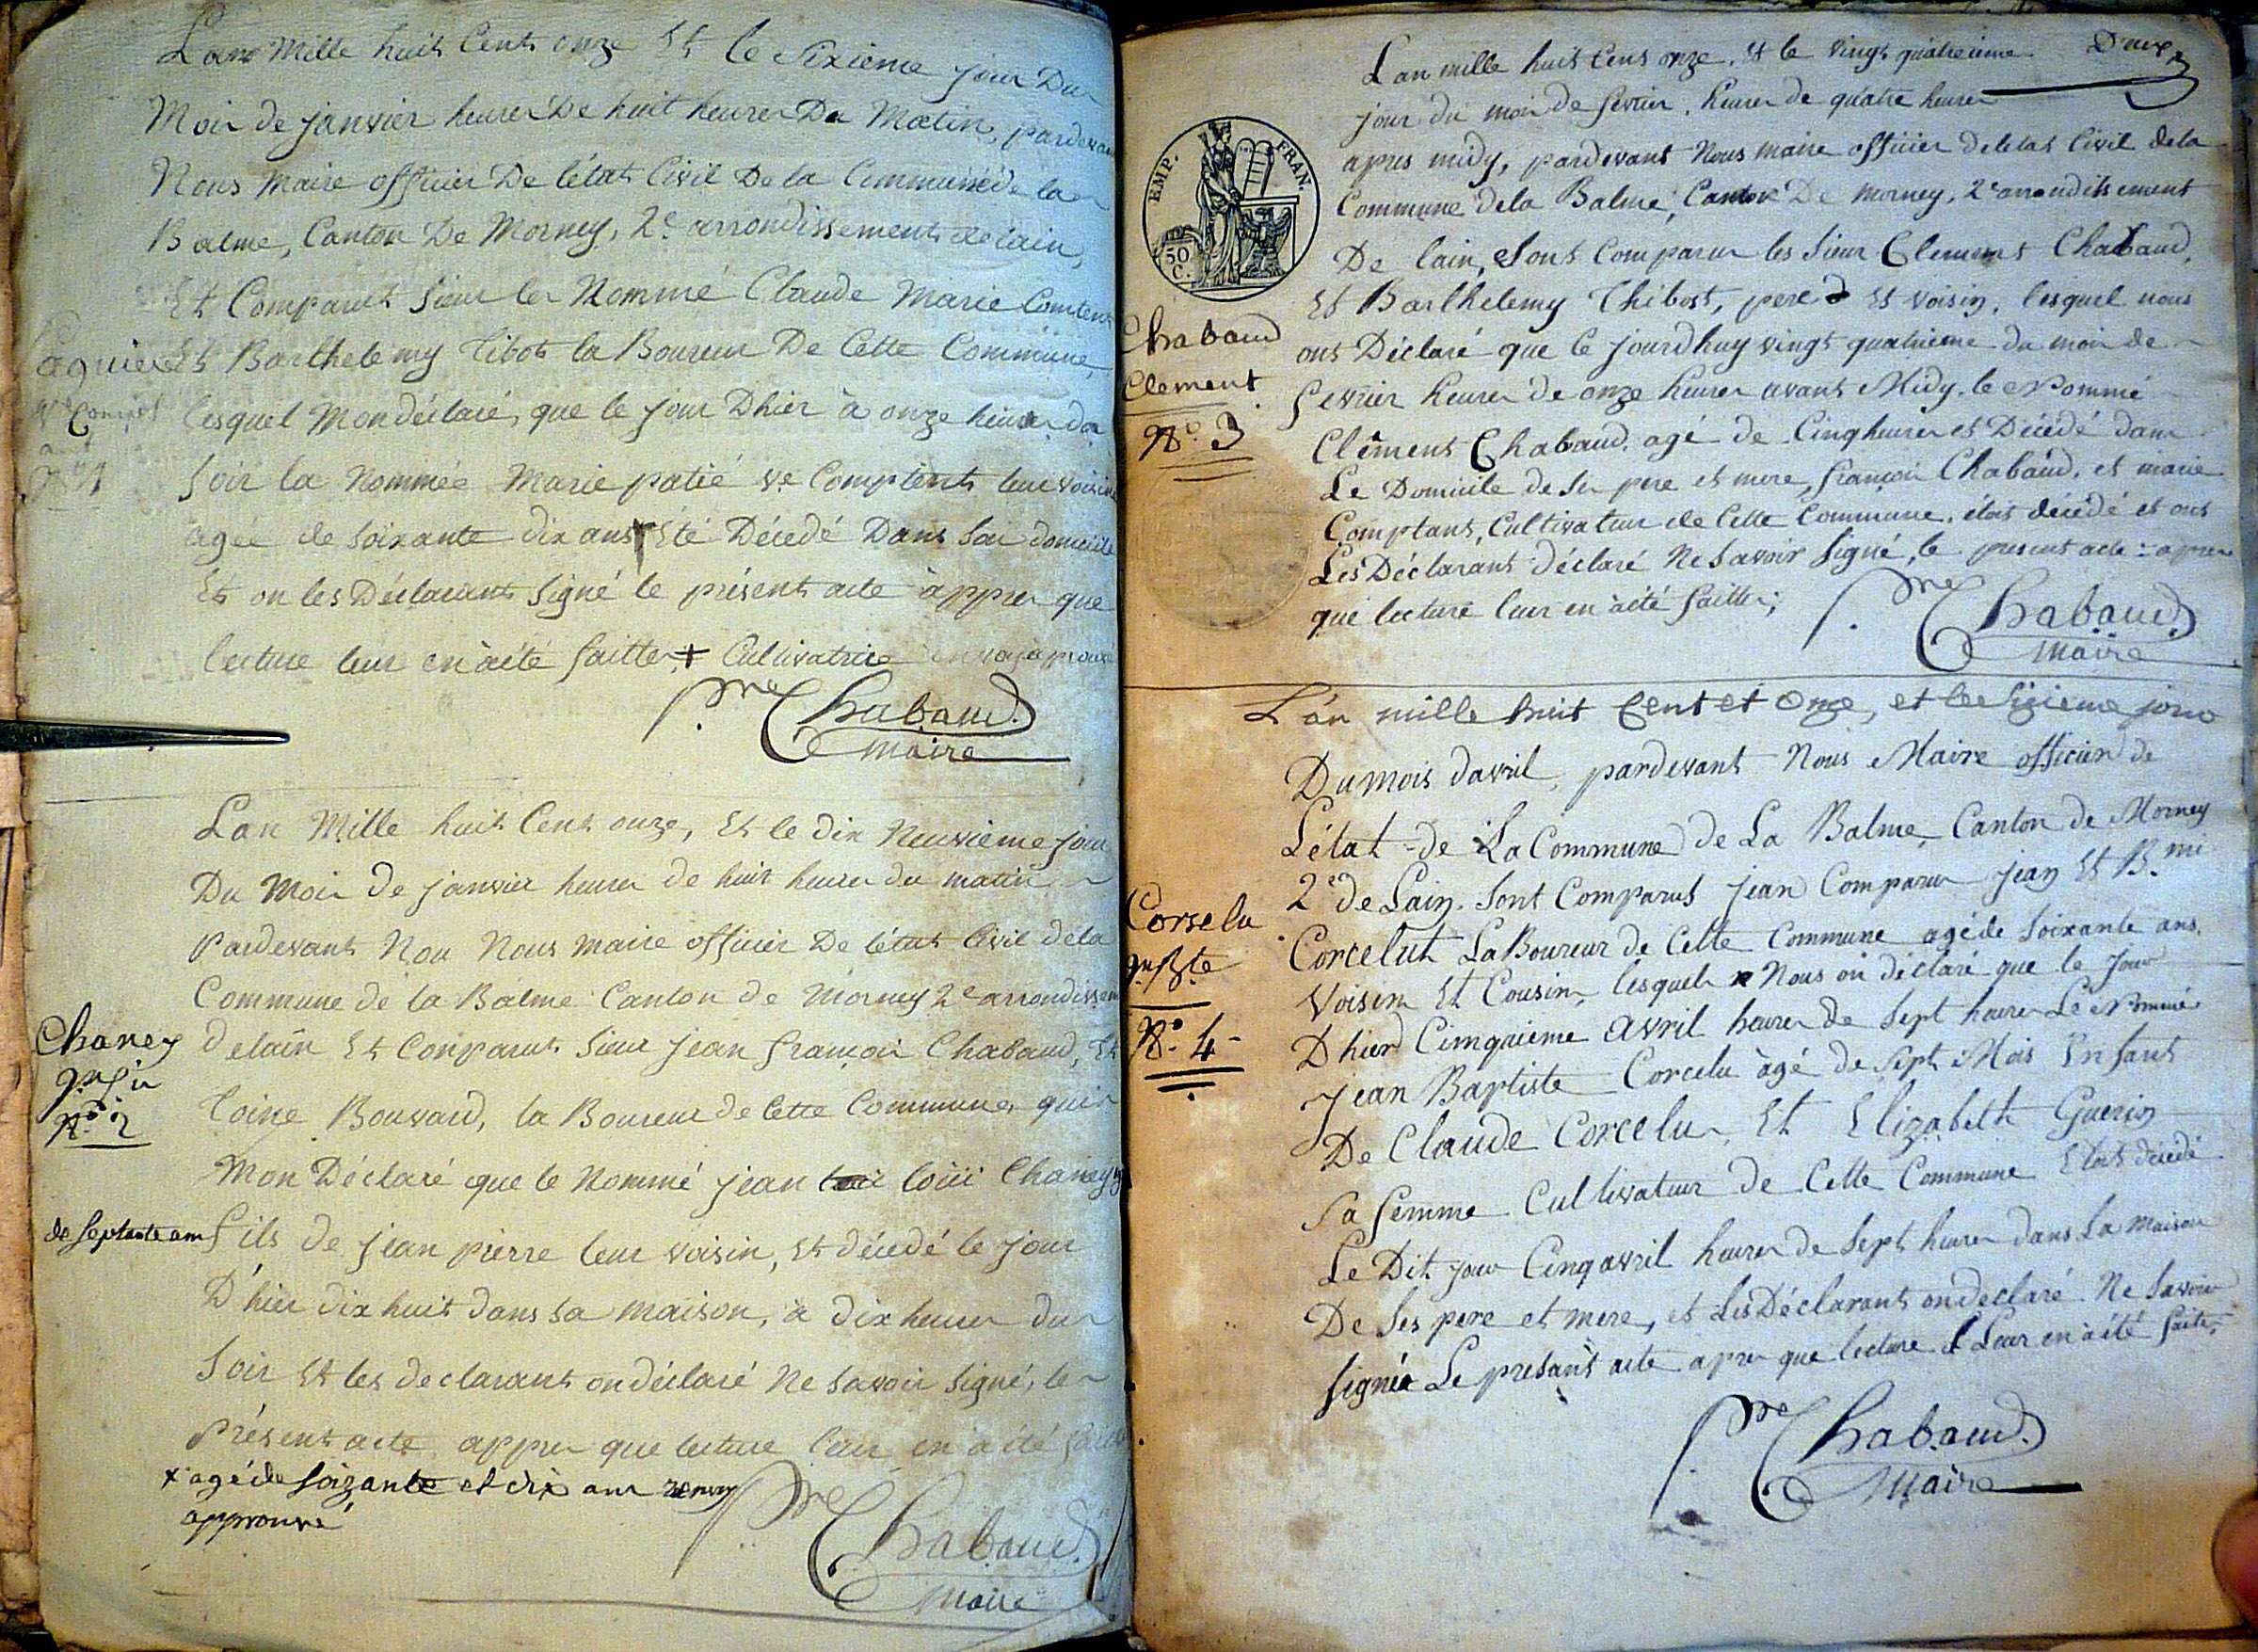 Lan Mille huit Cent onze Et le Sixieme jour Du
Moi de janvier heure De huit heure Du Matin, pardevan
Nous Maire officier De létat Civil De la Commune de la
Balme, Canton De Mornay, 2e arrondissement de lain,
Et Comparut sieur les Nommé Claude Marie Comtent
Et Barthelemy tibot la Boureur De Cette Commune,
lesquel Mon déclaré, que le jour Dhier à onze heure du
Soir la Nommée Marie patié ve Comptent leur voisine
agée de soixante dix ans + Été Décedé Dans son domicile
Et on les Déclarant signé le présent acte appre que
lecture leur en à été faitte, + Cultivatrice
Pre Chabaud
maire
ve Compt
No 1
Lan Mille huit Cent onze, Et le dix Neuvieme jour
Du Moi De janvier heure de huit heure du matin
Pardevant Nou Nous maire officier De létat Civil dela
Commune de la Balme Canton de Mornay 2e arrondissem
delain Et Conparut sieur jean françoi Chabaud, Et
toine Bouvard, la Boureur de Cette Commune, qui
Mon Déclaré que le Nommé jean loui Chaney
fils de jean pierre leur voisin, Et décedé le jour
D'hier dix huit dans sa maison, à dix heure du
Soir Et les declarant on déclaré Ne Savoir signé, le
Présent acte appre que lecture leur en a été faitte
x agé de soizante et dix ans
approuvé
Pre Chabaud
Maire
Chaney
No 2
de septante an
Deux
Lan mille huit Cent onze, et le vingt quatrieme
jour du moi de fevrier, heure de quatre heure
apres midy, pardevant Nous maire officier deletat Civil dela
Commune dela Balme, Canton De Mornay, 2e arrondissement
De lain, Sont Comparu les sieur Clement Chabaud,
Et Barthelemy Thibost, pere Et voisin, lesquel nous
ont Déclaré que le jourdhuy vingt quatrieme du moi de
fevrier heure de onze heure avant Midy. le Nommé
Clément Chabaud, agé de Cinq heure et Décedé dans
Le Domicile de ses pere et mere, françoi Chabaud, et marie
Comptant, Cultivateur de Cette Commune, étoit décedé et ont
Les Déclarant déclaré Ne Savoir signé, le present acte apres
que lecture leur en à été faitte;
Pre Chabaud
Maire
EMP. FRAN.
50
C.
Chabaud
Clement
No 3
L'an mille huit Cent et Onze, et le Sizieme jour
Du mois davril, pardevant Nous Maire officier de
L'état de La Commune de La Balme, Canton de Mornay
2e de Lain. Sont Comparus jean Comparu jean Et B.mi
Corcelut LaBoureur de Cette Commune agé de soixante ans,
Voisin Et Cousin, lesquel Nous on déclaré que le jour
D hier Cinquieme avril heure de Sept heure Le Nommé
jean Baptiste Corcelu àgé de sept Mois Enfant
De Claude Corcelu Et Elizabeth Guerin
Sa femme Cultivateur de Cette Commune Etoit décedé
Le Dit jour Cinq avril heure de Sept heure dans La Maison
De Ses pere et mere, et Les Déclarant on declaré Ne Savoir
signée Le presant acte apre que lecture Leur en à été faite,
Pre Chabaud
Maire
Corselu
Jn Bte
No 4